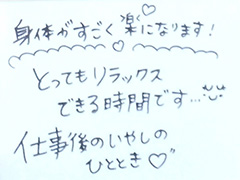 身体がすごく楽になります!
とってもリラックス
できる時間です...
仕事後のいやしの
ひととき♡